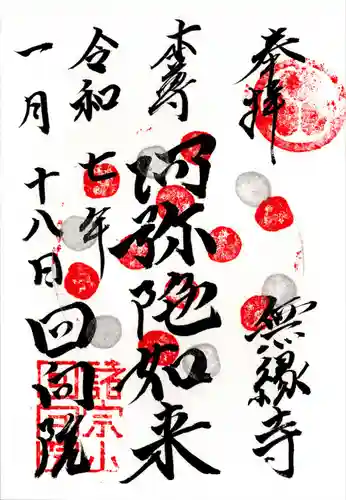 奉拝
無縁寺
本尊
阿弥陀如来
令和七年
一月十八日
回向院